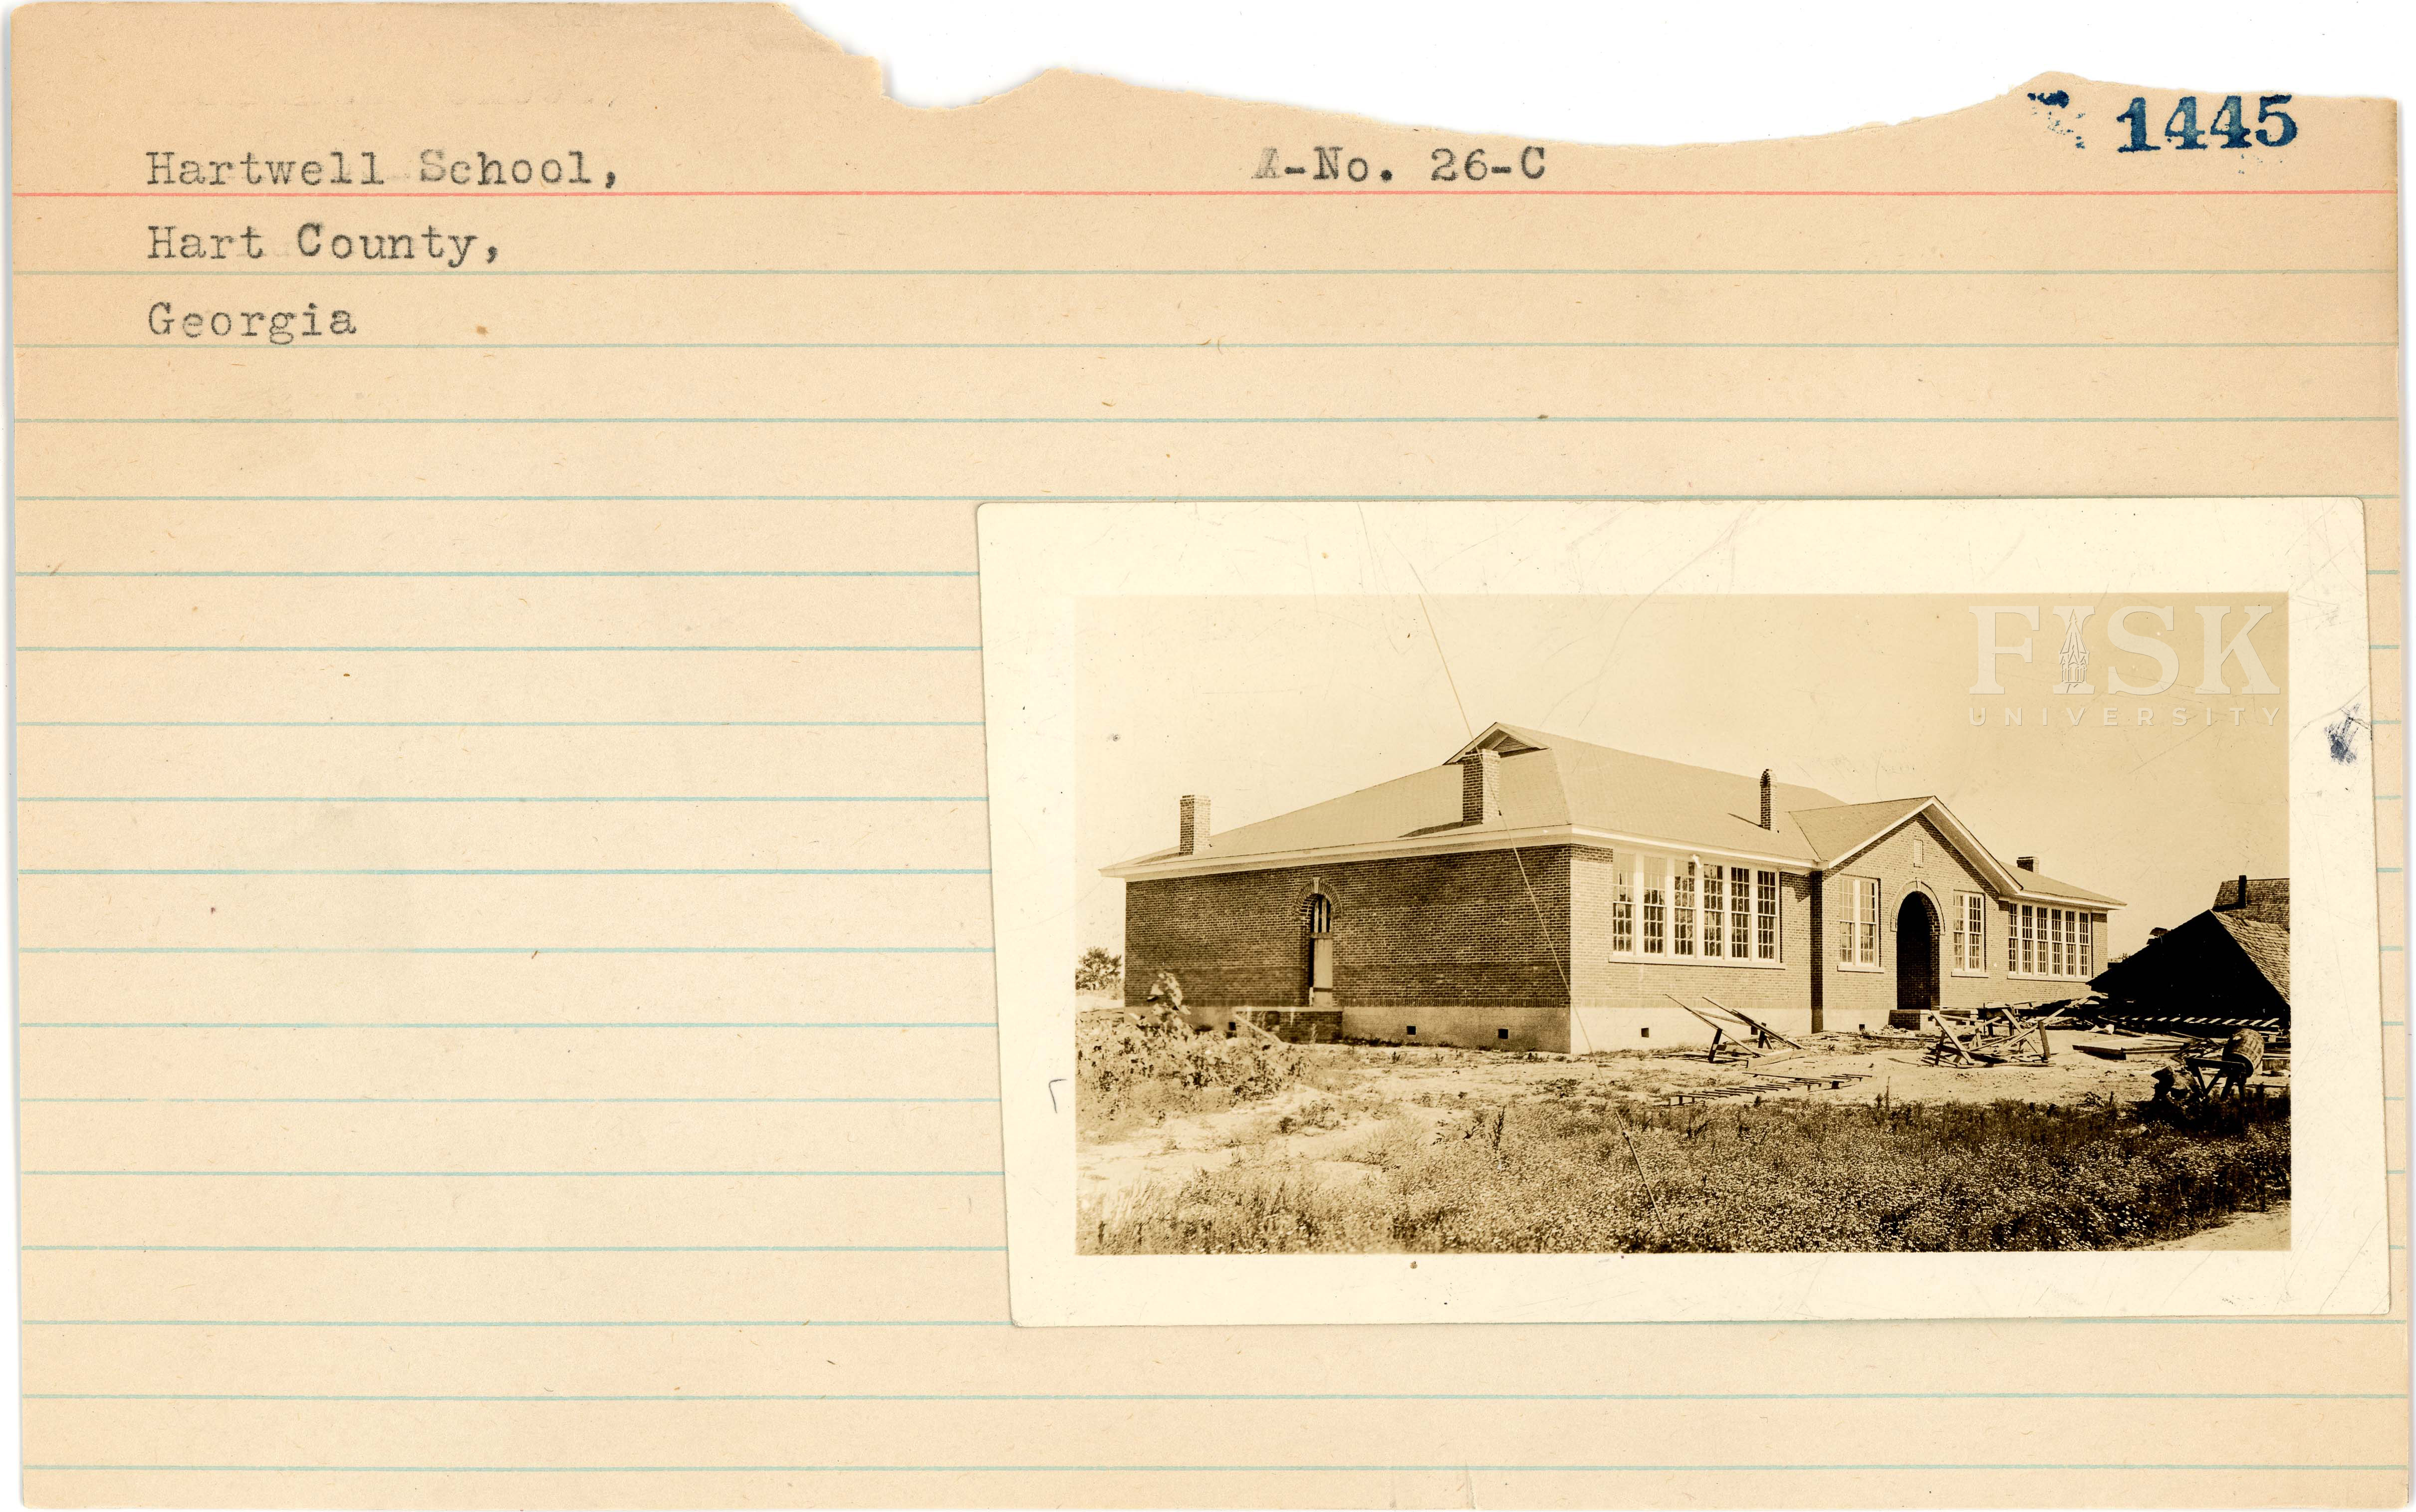 1445
Hartwell School, A-No. 26-C
Hart County,
Georgia
FISK
UNIVERSITY